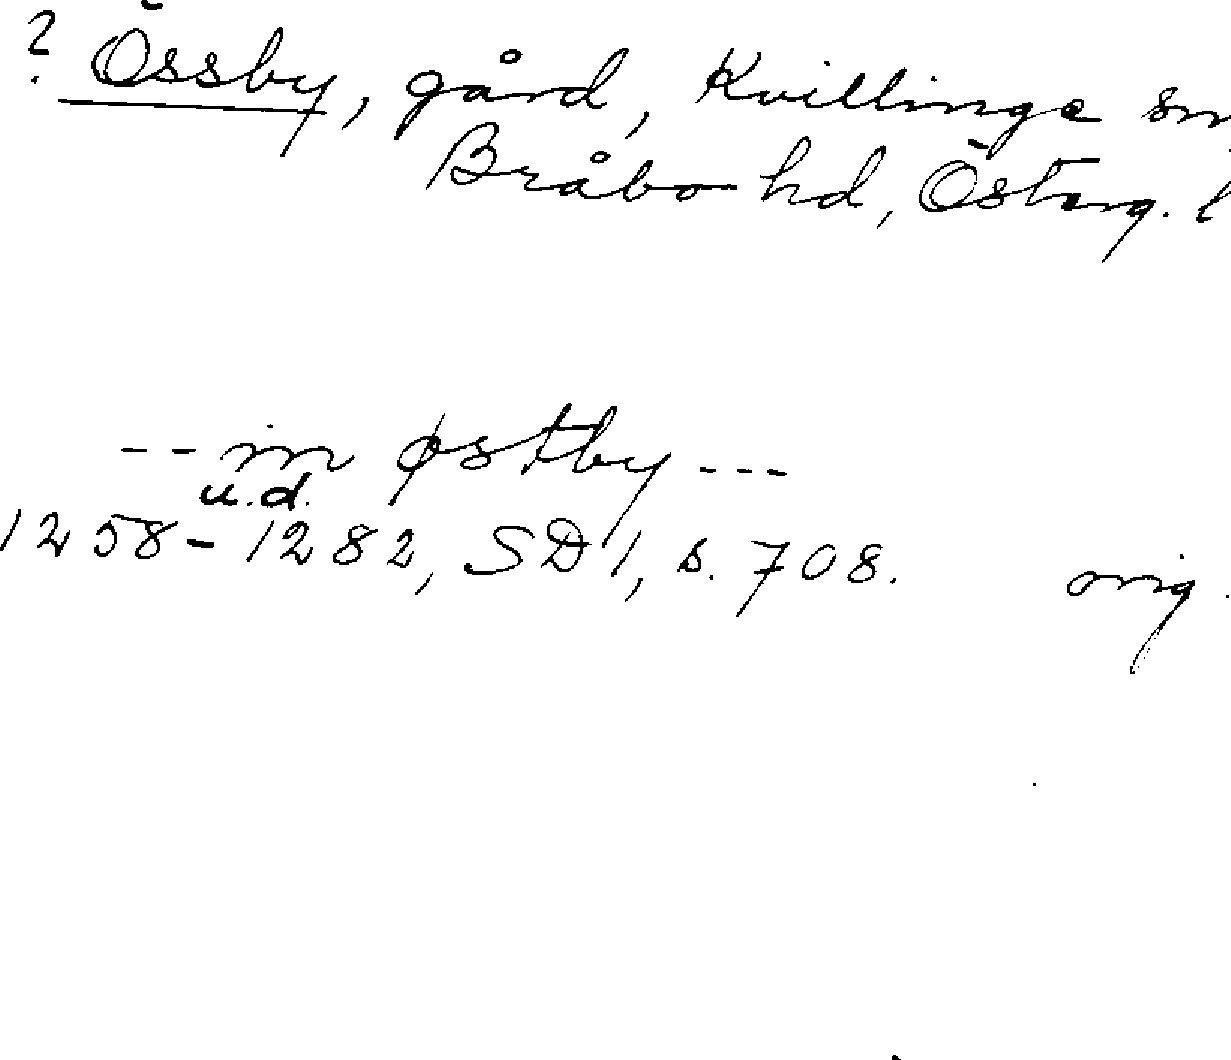 ? Össby, gård, Kvillinge sn
Bråbo hd, Österg. l
-- in østby ---
u.d.
1258-1282, SD 1, s. 708. orig.